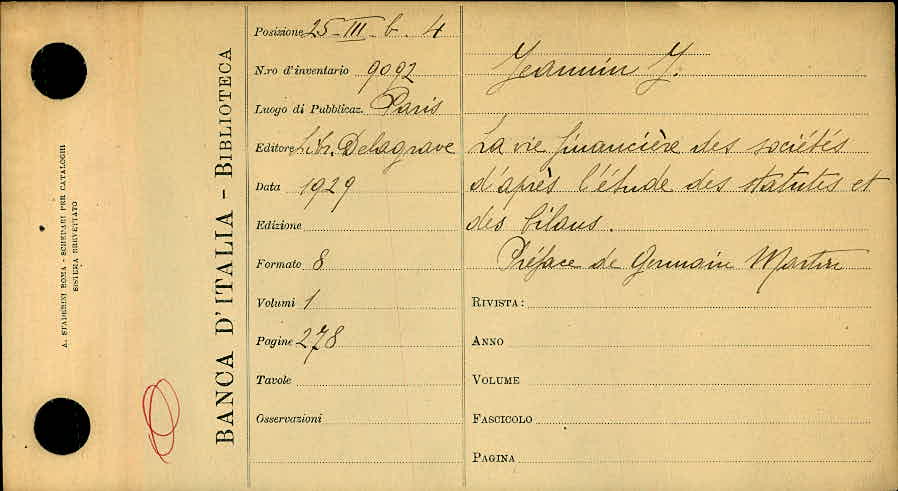 A. STADERINI ROMA - SCHEDARI PER CATALOGHI
SISTEMA BREVETTATO
BANCA D'ITALIA - BIBLIOTECA
Posizione 25-III-b.4
N.ro d'inventario 9092
Luogo di Pubblicaz. Paris
Editore Libr. Delagrave
Data 1929
Edizione
Formato 8
Volumi 1
Pagine 278
Tavole
Osservazioni
Jeannin J.
La vie financière des sociétés
d'après l'étude des statutes et
des bilans.
Préface de Germain Martin
RIVISTA:
ANNO
VOLUME
FASCICOLO
PAGINA